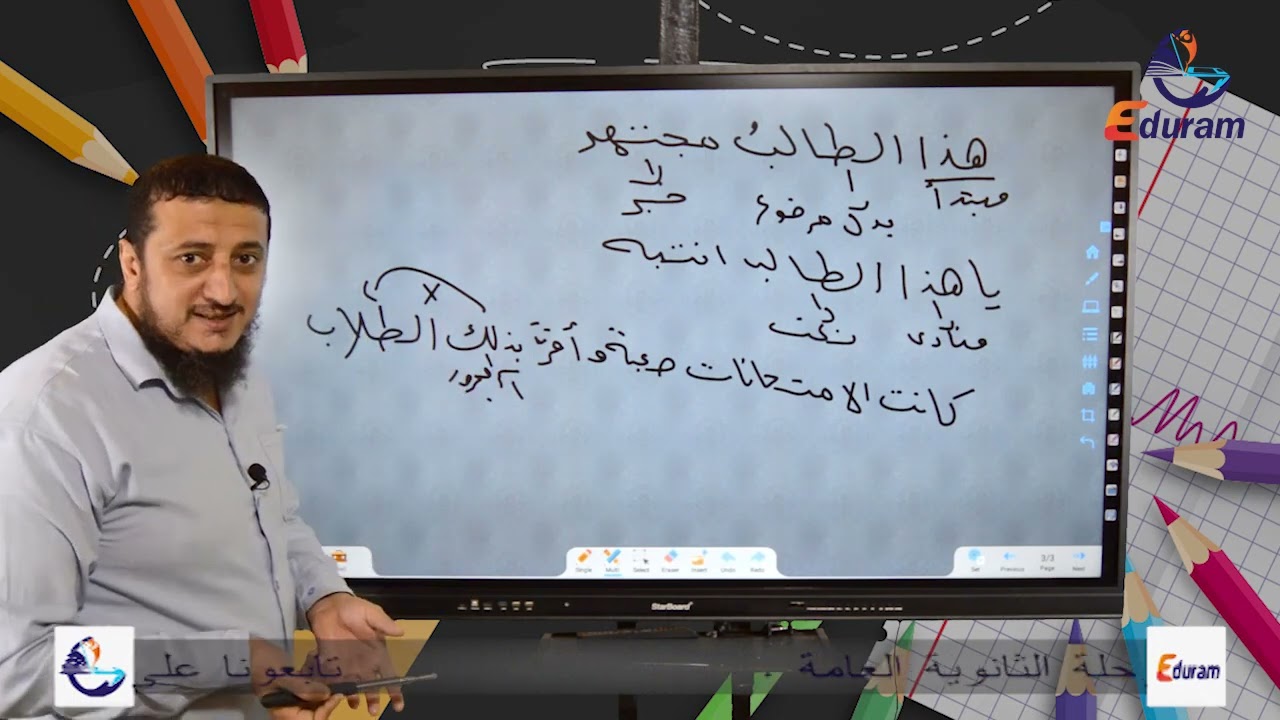 Eduram
هذا الطالبُ مجتهد
مبتدأ بدل مرفوع خبر
يا هذا الطالب انتبه
منادى نعت
كانت الامتحانات صعبة وأقرّ بذلك الطلاب
x
اسم مجرور
Single Multi Select Eraser Insert Undo Redo
Set Previous 3/3 Page Next
StarBoard
حلة الثانوية العامة تابعونا على
Eduram